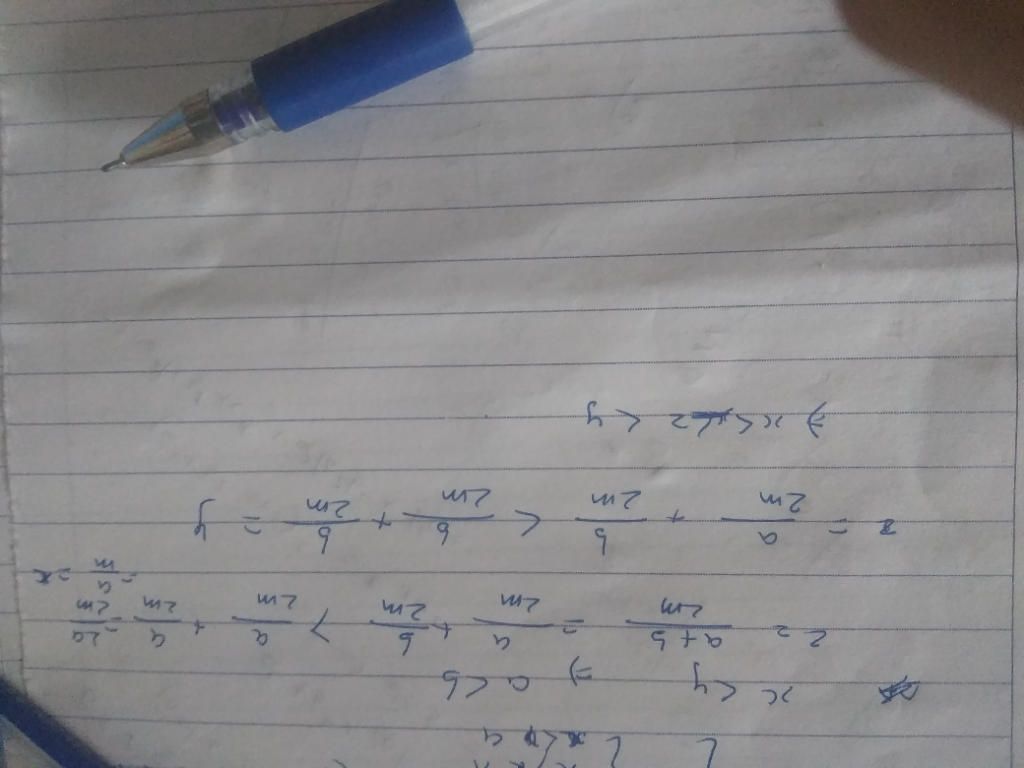 x < y ⇒ a < b
z = a+b/2m = a/2m + b/2m > a/2m + a/2m = 2a/2m
= a/m = x
z = a/2m + b/2m < b/2m + b/2m = y
⇒ x < z < y